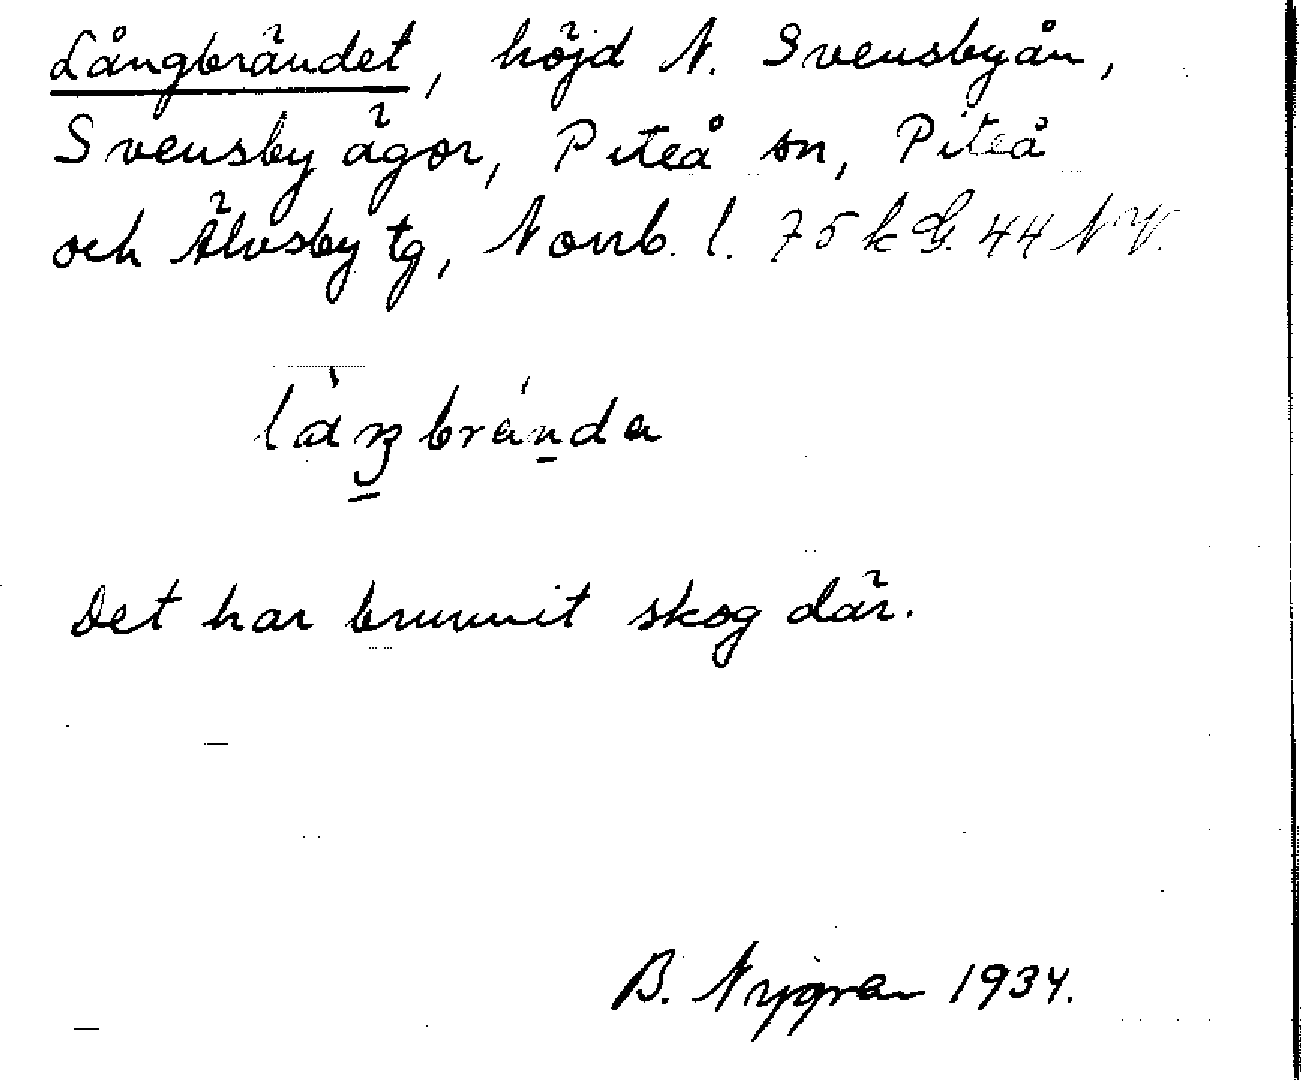 Långbrändet, höjd N. Svensbyån,
Svensby ägor, Piteå sn, Piteå
och Älvsby tg, Norrb. l. 75 k G. 44 NV.
làŋbránda
Det har brunnit skog där.
B. Nygren 1934.